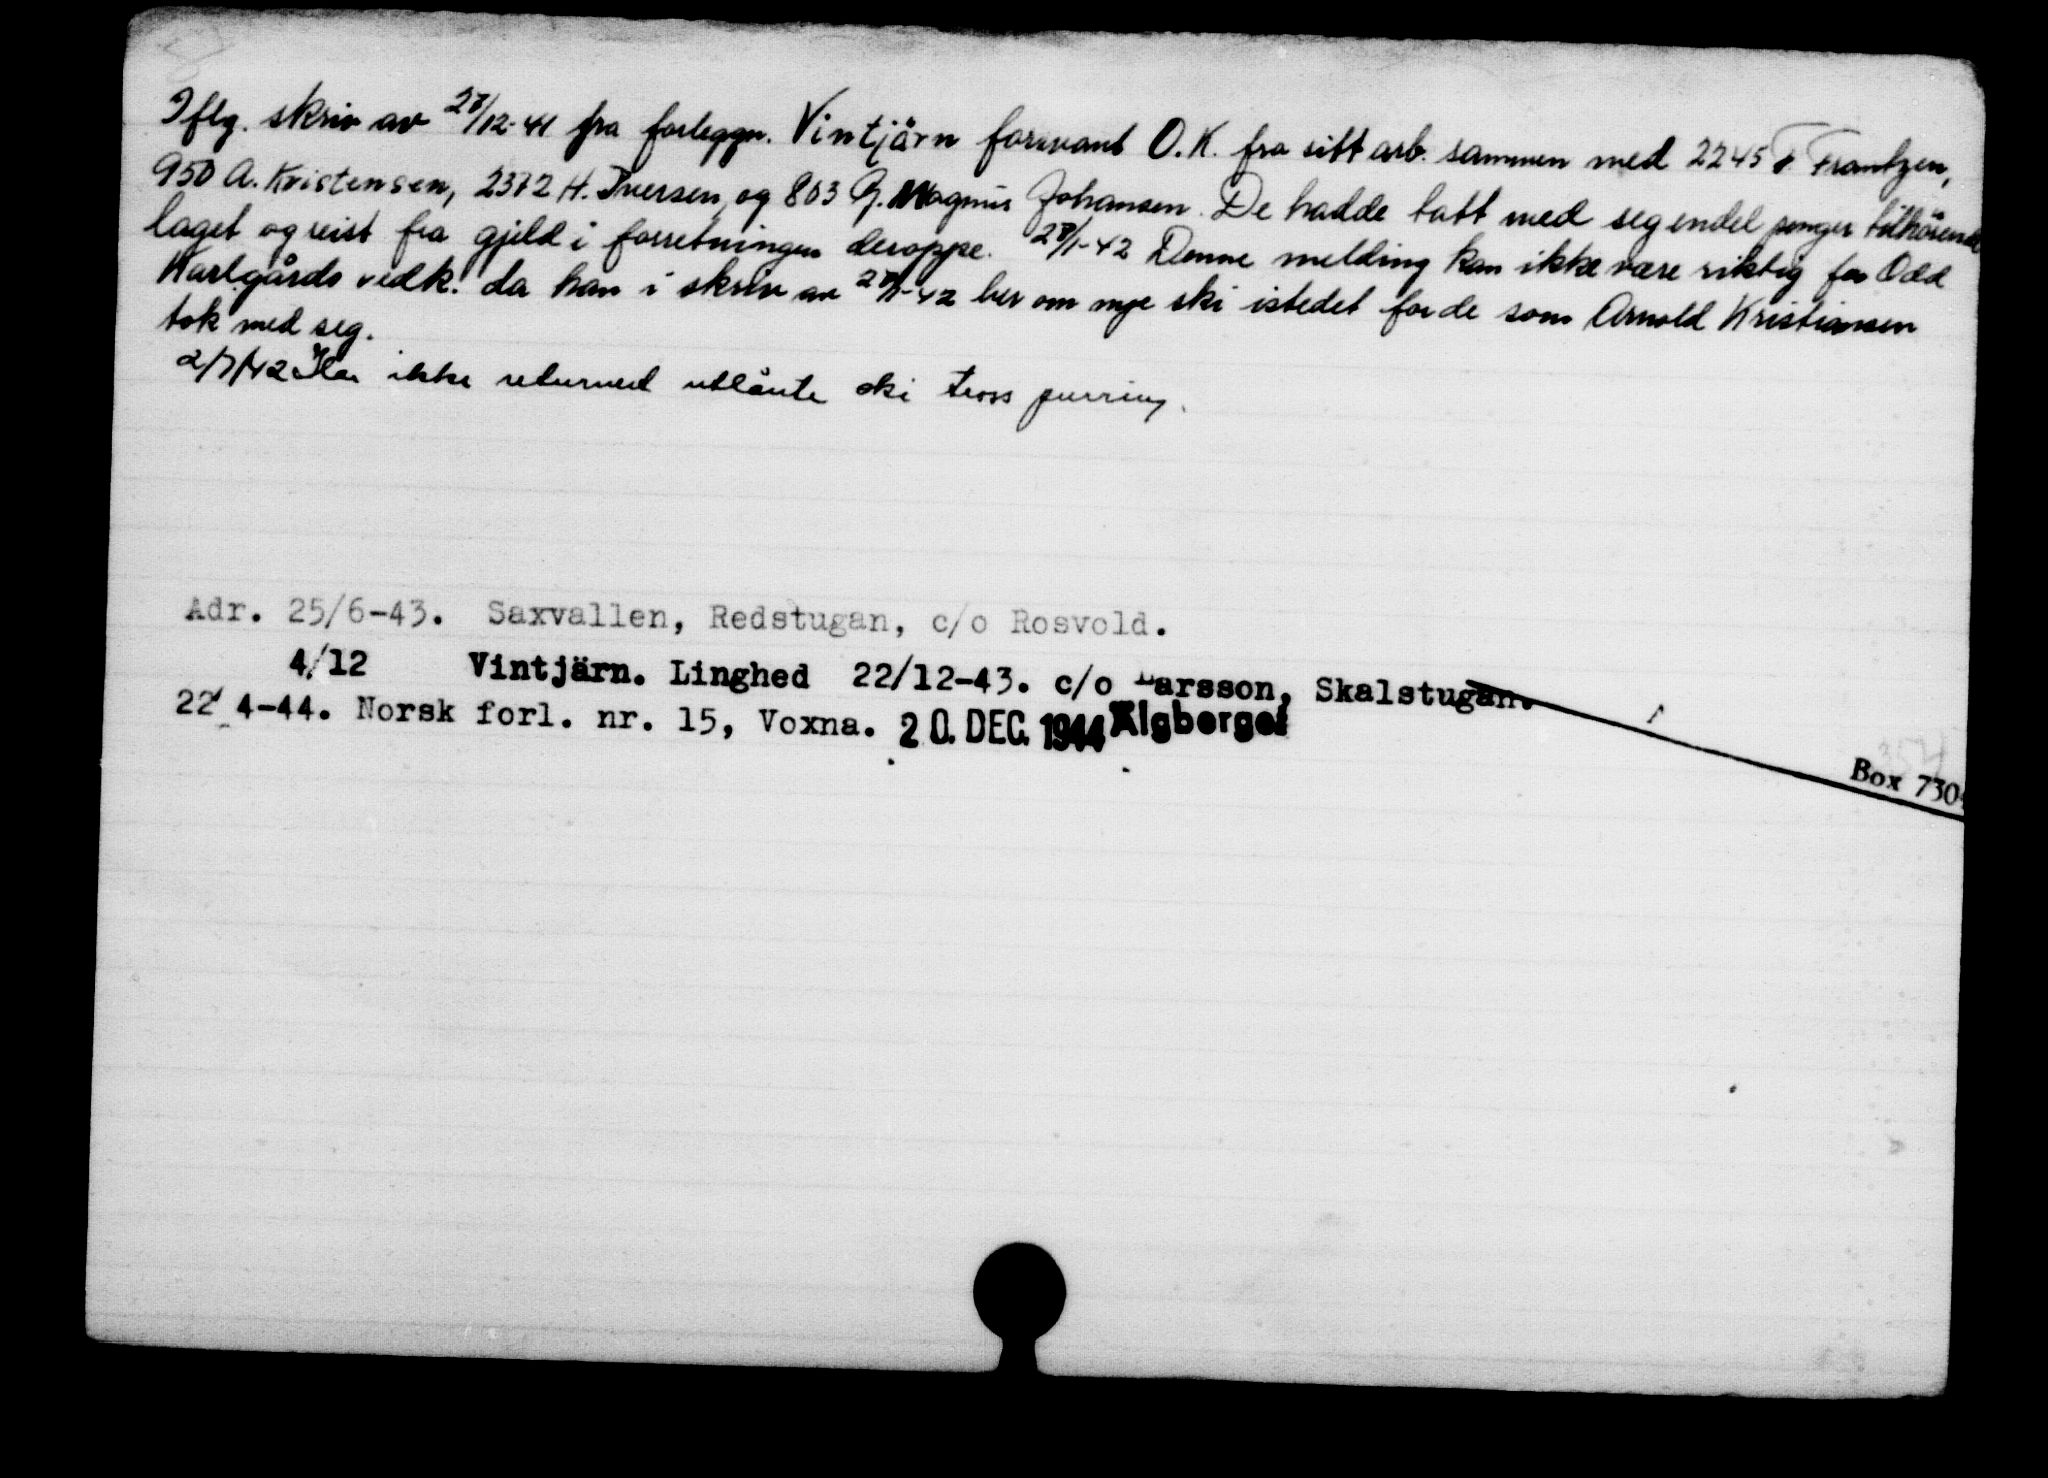 Iflg. skriv av 27/12-41 fra forleggn. Vintjärn forsvant O.K. fra sitt arb. sammen med 2245 F. Frantzen,
950 A. Kristensen, 2372 H. Iversen, og 803 G. Magnus Johansen. De hadde tatt med seg endel penger tilhörende
laget og reist fra gjeld i forretningen deroppe. 28/1-42 Denne melding kan ikke være riktig for Odd
Karlgårds vedk. da han i skriv av 28/1-42 ber om nye ski istedet for de som Arnold Kristiansen
tok med seg.
2/7/42 Har ikke returnert utlånte ski tross purring.
Adr. 25/6-43. Saxvallen, Redstugan, c/o Rosvold.
4/12 Vintjärn. Linghed 22/12-43. c/o Larsson, Skalstugan.
22/4-44. Norsk forl. nr. 15, Voxna. 20. DEC. 1944 Älgberget
Box 730